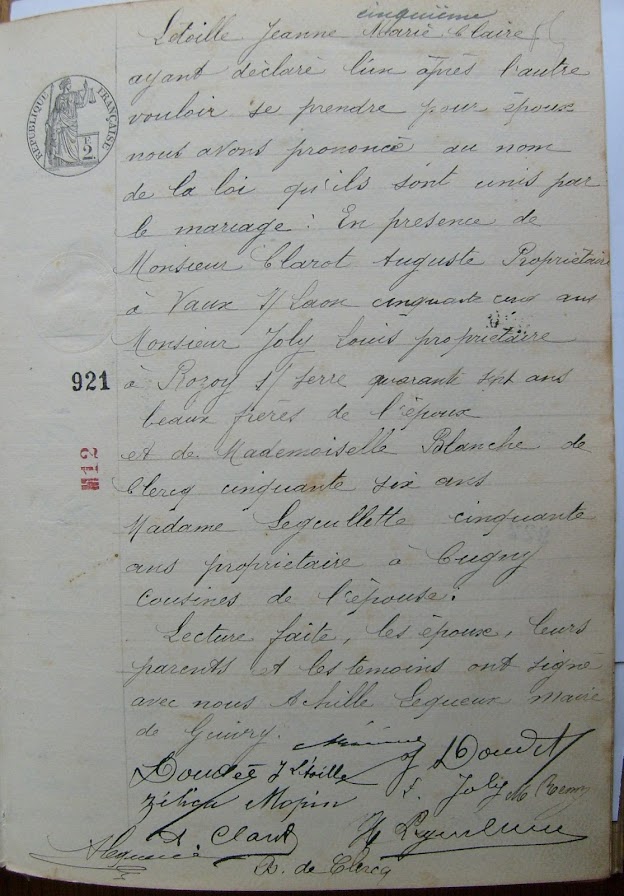 cinquième
Letoille Jeanne Marie Claire
ayant déclaré l'un après l'autre
vouloir se prendre pour époux
nous avons prononcé au nom
de la loi qu'ils sont unis par
le mariage : En présence de
Monsieur Clarot Auguste Propriétaire
à Vaux S/ Laon cinquante cinq ans
Monsieur Joly Louis propriétaire
à Rozoy s/ serre quarante sept ans
beaux frères de l'époux
et de Mademoiselle Blanche de
Clercq cinquante six ans
Madame cinquante
ans propriétaire à Cugny
cousines de l'épouse.
Lecture faite, les époux, leurs
parents et les témoins ont signé
avec nous Achille Lequeux maire
de Guivry.
J Létoille
Mopin L. Joly
B. de Clercq
RÉPUBLIQUE FRANÇAISE
2 F
921
M12